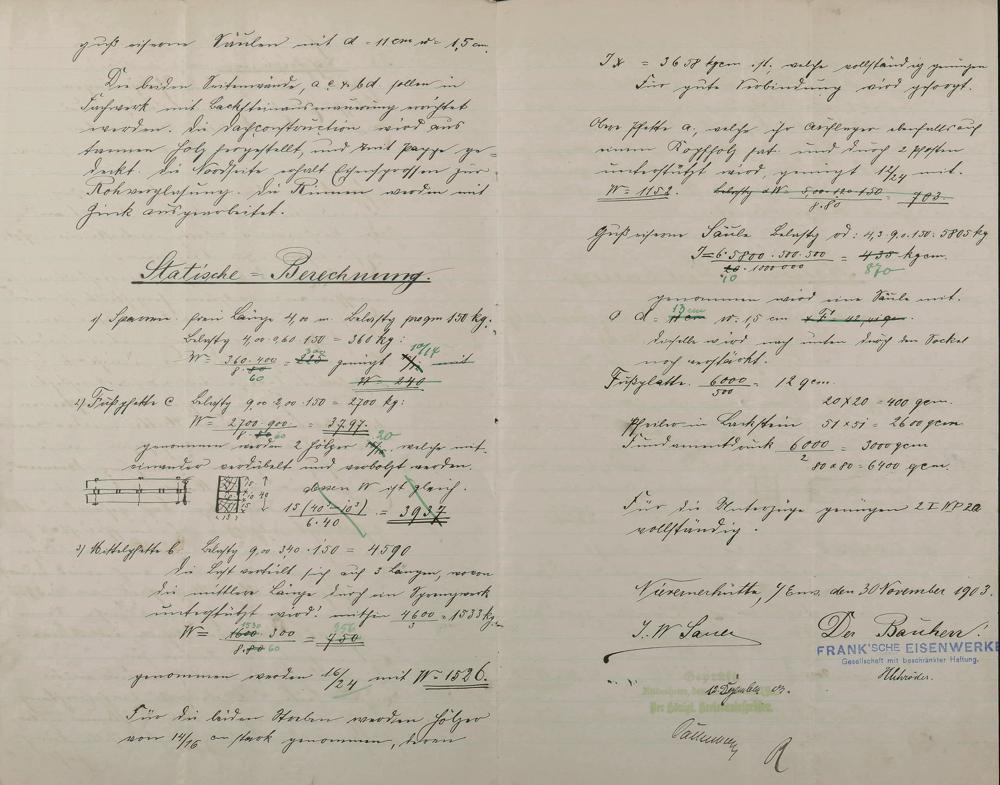 guß eiserne Säulen mit d = 11 cm w = 1,5 cm.
Die beiden Seitenwände, a c & b d sollen in
Fachwerk mit Backsteinausmauerung errichtet
werden. Die Dachconstruction wird aus
tannen Holz hergestellt, und mit Pappe ge-
deckt. Die Nordseite erhält Eisensprossen zur
Rohverglasung. Die Rinnen werden mit
Zink ausgearbeitet.
Statische = Berechnung.
1) Sparren. freie Länge 4,00 m. Belastg pro qm 150 kg.
Belastg 4,00 · 0,60 · 150 = 360 kg:
W = 360 · 400 / 8 · 60 = 300 genügt 10/14 mit
W = 240
2) Fußpfette c. Belastg 9,00 · 2,00 · 150 = 2700 kg:
W = 2700 · 900 / 60 = 3797.
genommen werden 2 Hölzer 20 welche mit
einander verdübelt und verbolzt werden.
dessen W ist gleich.
15 (40³ - 10³) / 6 · 40 = 3937
3) Mittelpfette b. Belastg 9,00 · 340 · 150 = 4590
Die Last verteilt sich auf 3 Längen, wovon
die mittlere Länge durch ein Sprengwerk
unterstützt wird! mithin 4600 / 3 = 1533 kg
W = 1530 · 300 / 8 · 60 = 956
genommen werden 16/24 mit W = 1526.
Für die beiden Streben werden Hölzer
von 14/16 cm stark genommen, deren
Jx = 3658 kgcm ist, welche vollständig genügen
Für gute Verbindung wird gesorgt.
Obere Pfette a, welche ihr Auflager ebenfalls auf
einem Kopfholz hat und durch 2 Pfosten
unterstützt wird, genügt 12/24 mit.
W = 1152. Belastg & W = 5,00 · 120 · 150 / 8 · 80 = 703.
Guß eiserne Säule Belastg od: 4,3 · 9,0 · 150 = 5805 kg
J = 6 · 5800 · 500 · 500 / 10 · 1000 000 = 435 kgcm.
10 870
genommen wird eine Säule mit.
d = 13 cm w = 1,5 cm
dieselbe wird nach unten durch den Sockel
noch verstärkt.
Fußplatte. 6000 / 500 = 12 qcm.
20 x 20 = 400 qcm.
Pfeiler in Backstein 51 x 51 = 2600 qcm
Fundamentdruck 6000 / 2 = 3000 qcm
80 x 80 = 6400 qcm.
Für die Unterzüge genügen 2 I NP 20
vollständig.
Nievernerhütte, /Ems. den 30 November 1903.
J. W. Sauer Der Bauherr!
FRANK'SCHE EISENWERKE
Gesellschaft mit beschränkter Haftung.
Geprüft
12 Dezember 03.